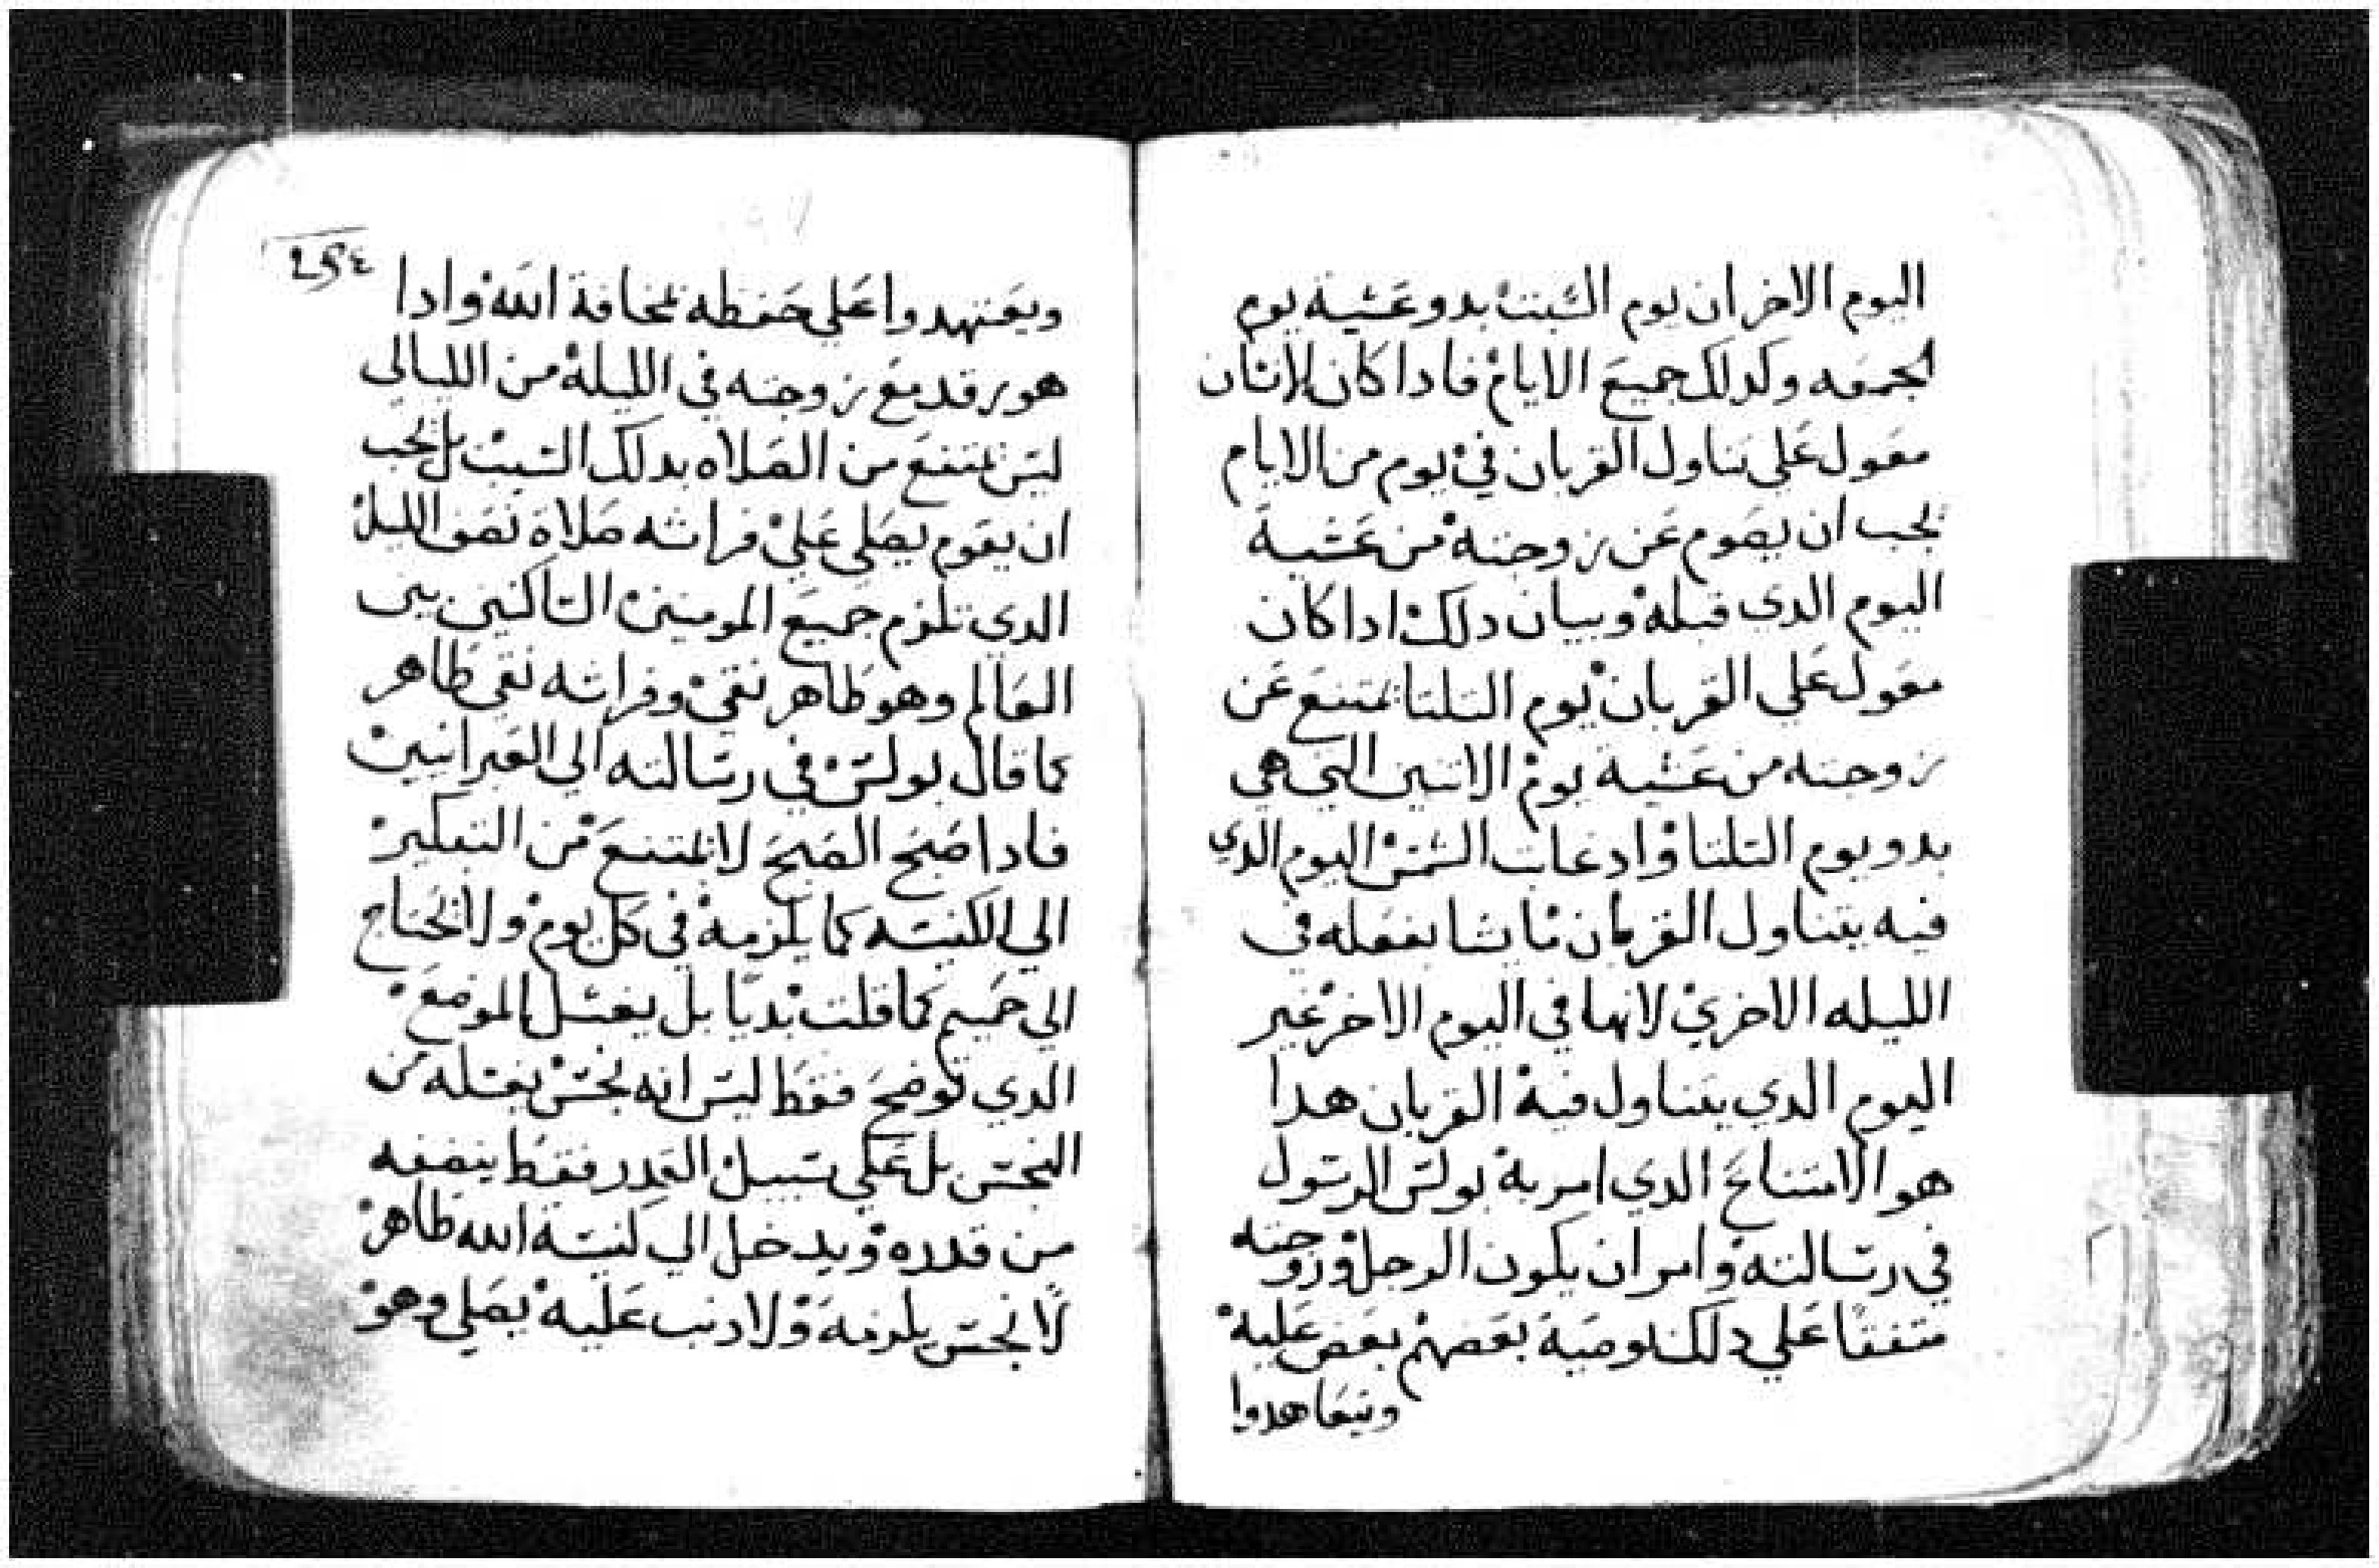 اليوم الاخر ان يوم السبت بدو عشية يوم
الجمعه وكدلك جميع الايام فادا كان الانسان
معول على تناول القربان في يوم من الايام
يجب ان يصوم عن زوجته من عشية
اليوم الدى قبله وبيان دلك ادا كان
معول على القربان يوم التلتا يمتنع عن
زوجته من عشية يوم الاتنين التي هي
بدو يوم التلتا وادغابت الشمس اليوم الدي
فيه يتناول القربان ماشا يفعله في
الليله الاخري لانها في اليوم الاخر غير
اليوم الدي يتناول فيه القربان هدا
هو الامتناع الدي امر به بولس الرسول
في رسالته وامر ان يكون الرجل وزوجته
متفقا على دلك يوصية بعضهم بعض عليه
ويتعاهدوا
ويعتهدوا على حفظه لمخافة الله وادا
هو رقد مع زوجته في الليلة من الليالي
ليس يمتنع من الصلاه بدلك السبب بل يجب
ان يقوم يصلى على فراشه صلاة نصف الليل
الدي تلزم جميع المومنين الساكنين بين
العالم وهو طاهر نقي وفراشه نقى طاهر
كما قال بولس في رسالته الى العبرانيين
فادا صبح الصبح لا يمتنع من التبكير
الى الكنيسه كما يلزمه في كل يوم ولا يحتاج
الي حميم كما قلت بديا بل يغسل الموضع
الدي توضح فقط ليس انه نجس يغسله من
النجس بل على سبيل القدر فقط ينضفه
من قدره ويدخل الي كنيسة الله طاهر
لا نجس يلزمه ولا دنب عليه يصلي وهو